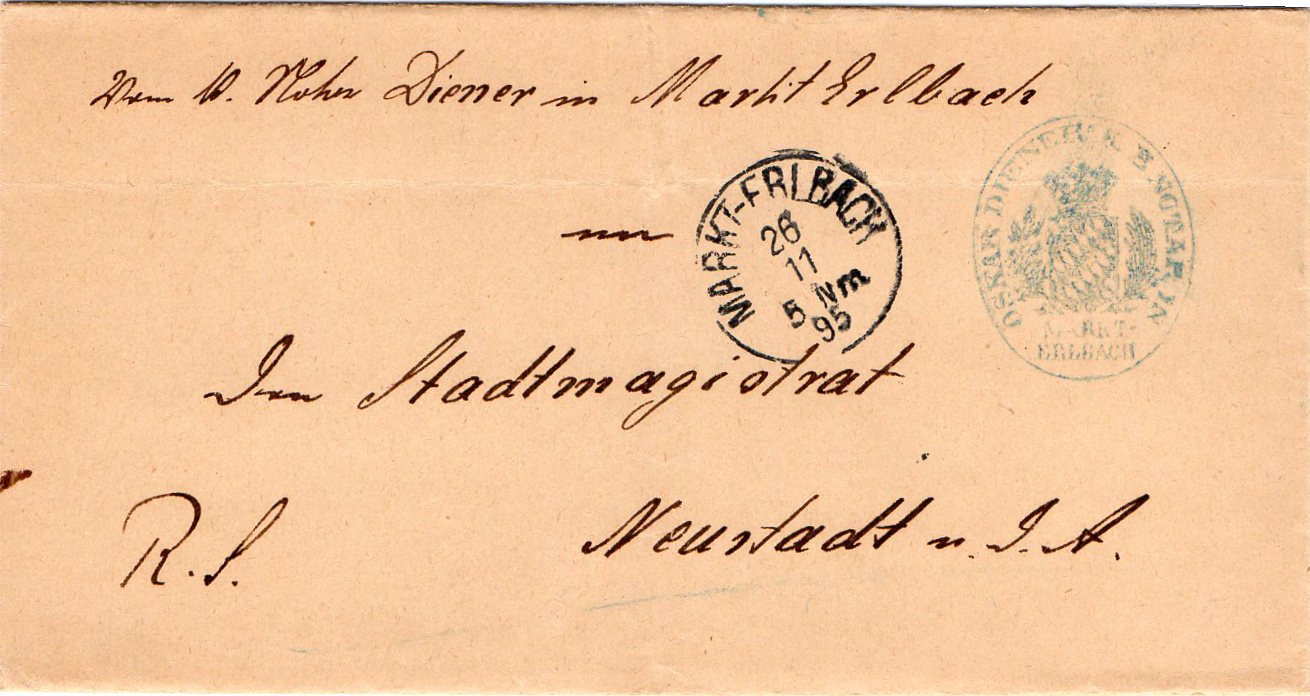 Vom K. Notar Diener in Markt Erlbach
an
MARKT-ERLBACH
26
11
5 Nm
95
OSKAR DIENER K. B. NOTAR IN
MARKT-
ERLBACH
Den Stadtmagistrat
R. S.
Neustadt a. d. A.